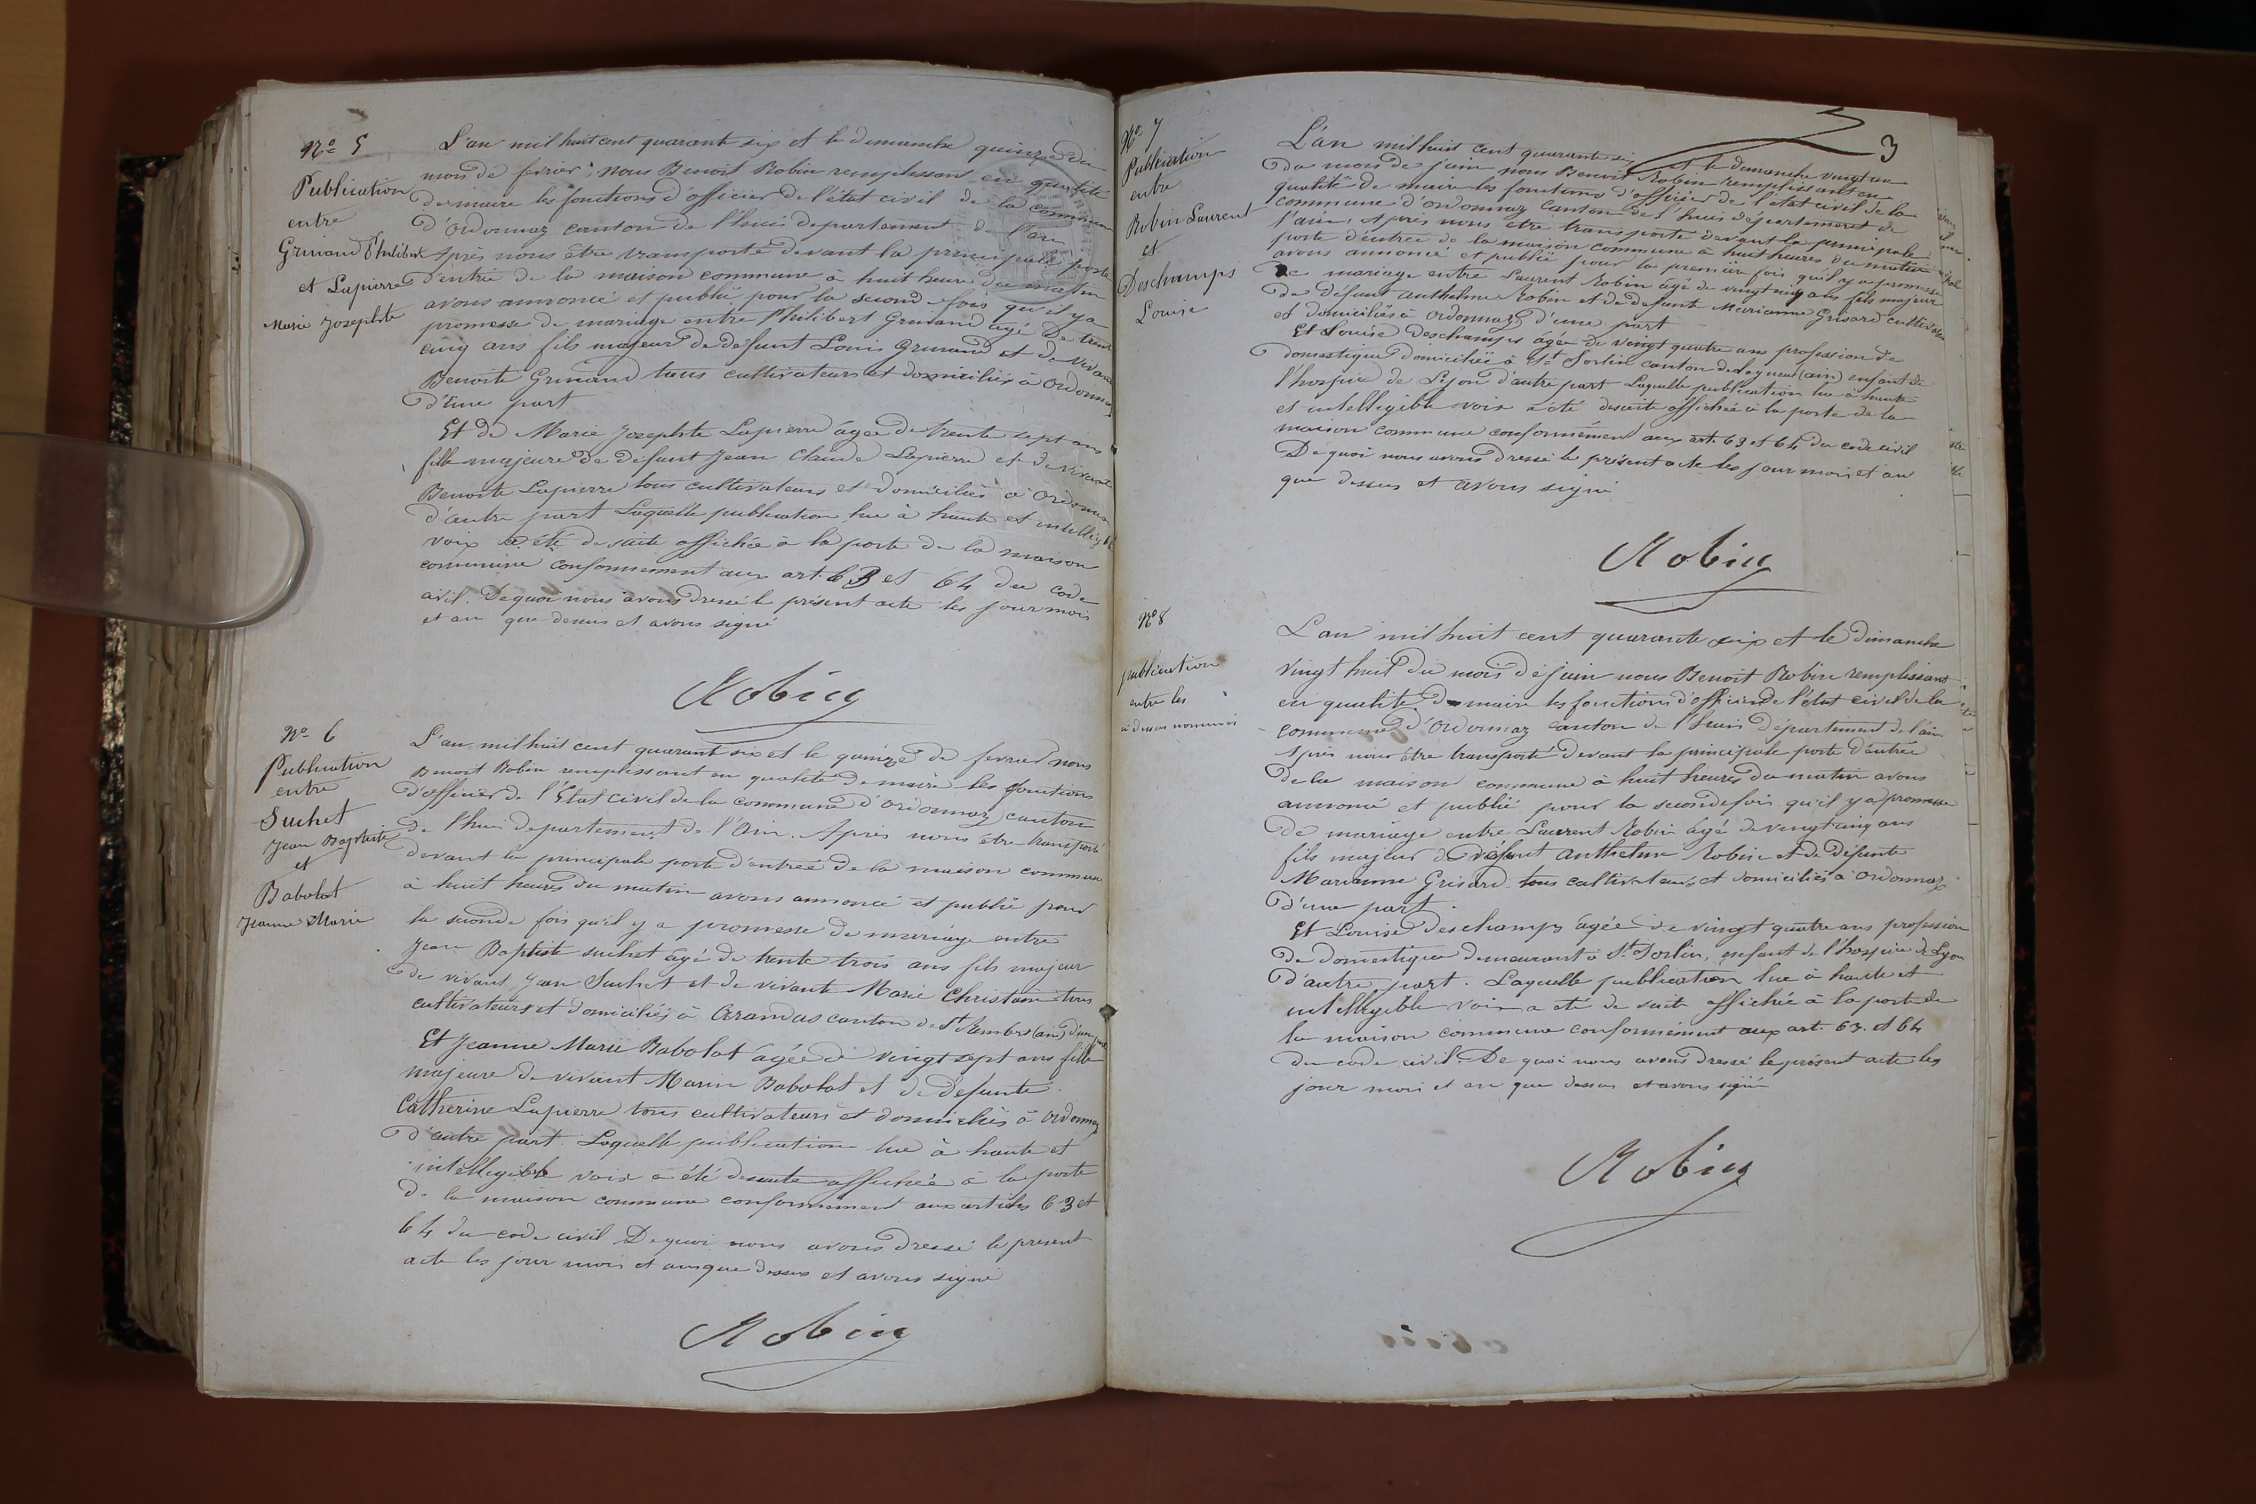 Nº 5
Publication
entre
Grinand Philibert
et Lapierre
Marie Josephte
L'an mil huit cent quarante six et le dimanche quinze du
mois de fevrier, nous Benoit Robin remplissant en qualité
de maire les fonctions d'officier de l'état civil de la commune
d'Ordonnaz canton de l'huis departement de l'ain
Après nous être transporté devant la principale porte
d'entrée de la maison commune à huit heure du matin
avons annoncé et publié pour la seconde fois qu'il y a
promesse de mariage entre Philibert Grinand agé de trente
cinq ans fils majeur de défunt Louis Grinand et de vivante
Benoite Grinand tous cultivateurs et domiciliés à Ordonnaz
d'une part
Et de Marie Josephte Lapierre âgée de trente sept ans
fille majeure de défunt Jean Claude Lapierre et de vivante
Benoite Lapierre tous cultivateurs et domiciliés à Ordonnaz
d'autre part Laquelle publication lue à haute et intelligible
voix a été de suite affichée à la porte de la maison
commune conformement aux art. 63 et 64 du code
civil. De quoi nous avons dressé le présent acte les jour mois
et an que dessus et avons signé
Robin
Nº 6
Publication
entre
Suchet
Jean Baptiste
et
Babolat
Jeanne Marie
L'an mil huit cent quarant six et le quinze de fevrier nous
Benoit Robin remplissant en qualité de maire les fonctions
d'officier de l'État civil de la commune d'Ordonnaz canton
de l'huis departement de l'Ain. Après nous être transporté
devant la principale porte d'entrée de la maison commune
à huit heures du matin avons annoncé et publié pour
la seconde fois qu'il y a promesse de mariage entre
Jean Baptiste suchet âgé de trente trois ans fils majeur
de vivant Jean Suchet et de vivante Marie Christain tous
cultivateurs et domiciliés à Arandas canton de St Rambert (ain) d'une part
Et Jeanne Marie Babolat âgée de vingt sept ans fille
majeure de vivant Marin Babolat et de Défunte
Catherine Lapierre tous cultivateurs et domiciliés à Ordonnaz
d'autre part. Laquelle publication lue à haute et
intelligible voix a été de suite affichée à la porte
de la maison commune conformement aux articles 63 et
64 du code civil De quoi nous avons dressé le present
acte les jour mois et an que dessus et avons signé
Robin
3
Nº 7
Publication
entre
Robin Laurent
et
Deschamps
Louise
L'an mil huit cent quarante six et le dimanche vingt un
du mois de juin nous Benoit Robin remplissant en
qualité de maire les fonctions d'officier de l'état civil de la
commune d'Ordonnaz canton de l'huis département de
l'ain, Après nous etre transporté devant la principale
porte d'entrée de la maison commune à huit heures du matin
avons annoncé et publié pour la première fois qu'il y a promesse
de mariage entre Laurent Robin âgé de vingt cinq ans fils majeur
de défunt Anthelme Robin et de défunte Marianne Grisard cultivateurs
et domiciliés à Ordonnaz d'une part
Et Louise Deschamps âgée de vingt quatre ans profession de
domestique domiciliée à St Sorlin canton de Lagnieu (ain) enfant de
l'hospice de Lyon d'autre part Laquelle publication lue à haute
et intelligible voix a été desuite affichée à la porte de la
maison commune conformément aux art. 63 et 64 du code civil
De quoi nous avons dressé le présent acte les jour mois et an
que dessus et avons signé
Robin
Nº 8
publication
entre les
ci dessus nommés
L'an mil huit cent quarante six et le dimanche
vingt huit du mois de juin nous Benoit Robin remplissant
en qualité de maire les fonctions d'officier de l'état civil de la
commune d'Ordonnaz canton de l'huis département de l'ain
Après nous être transporté devant la principale porte d'entrée
de la maison commune à huit heures du matin avons
annoncé et publié pour la seconde fois qu'il y a promesse
de mariage entre Laurent Robin âgé de vingt cinq ans
fils majeur de défunt Anthelme Robin et de défunte
Marianne Grisard tous cultivateurs et domiciliés à Ordonnaz
d'une part.
Et Louise Deschamps âgée de vingt quatre ans profession
de domestique demeurant à St Sorlin, enfant de l'hospice de Lyon
d'autre part. Laquelle publication lue à haute et
intelligible voix a été de suite affichée à la porte de
la maison commune conformément aux art. 63. et 64
du code civil. De quoi nous avons dressé le présent acte les
jour mois et an que dessus et avons signé
Robin